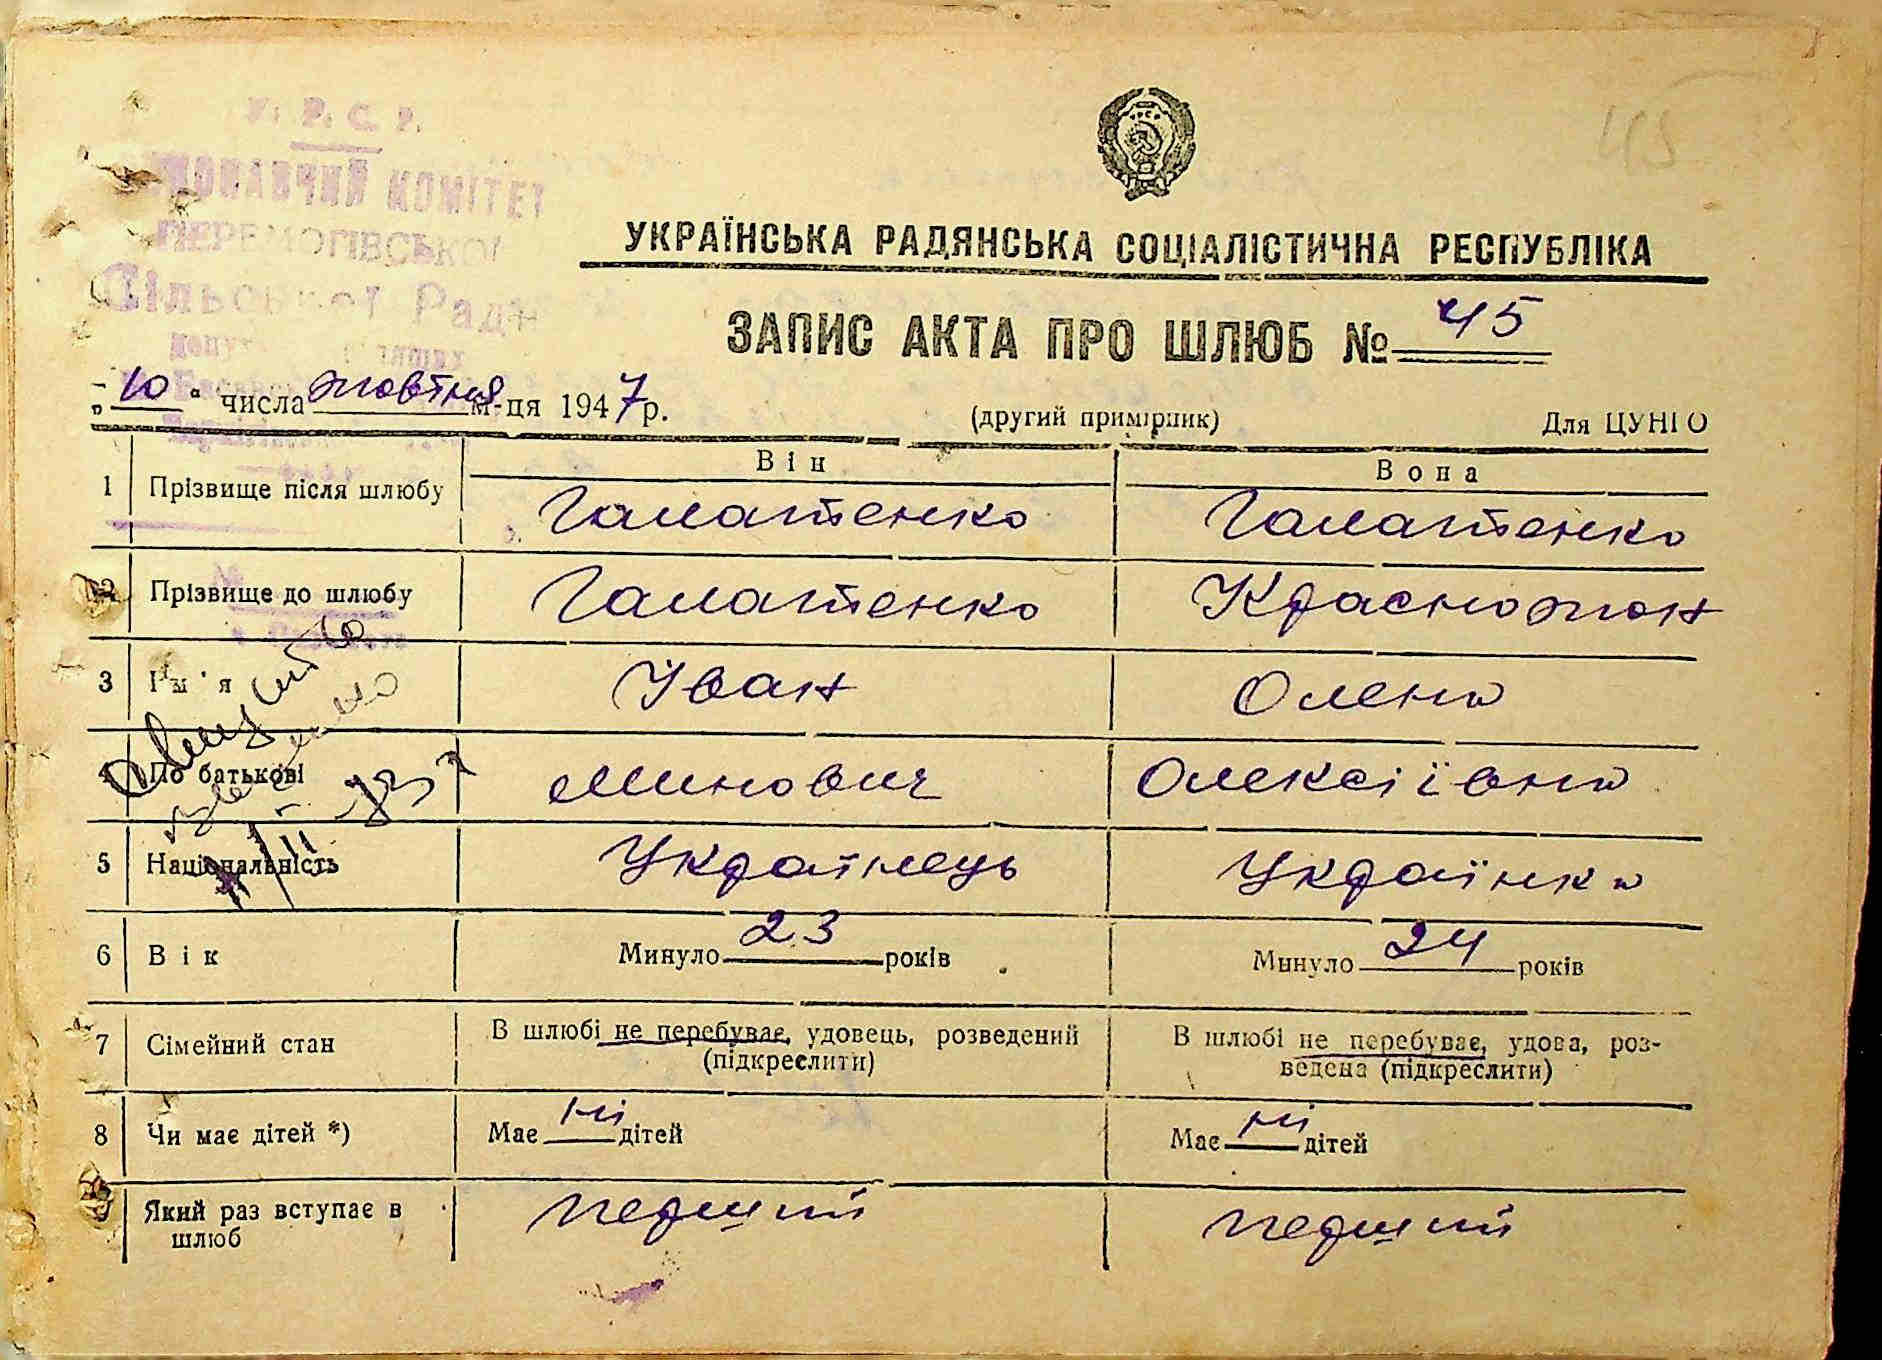 У. Р. С. Р.
ВИКОНАВЧИЙ КОМІТЕТ
ПЕРЕМОГІВСЬКОЇ
Сільської Ради
45
УКРАЇНСЬКА РАДЯНСЬКА СОЦІАЛІСТИЧНА РЕСПУБЛІКА
ЗАПИС АКТА ПРО ШЛЮБ № 45
„10" числа жовтня м-ця 1947 р. (другий примірник) Для ЦУНГО
Він Вона
1 Прізвище після шлюбу Галатенко Галатенко
2 Прізвище до шлюбу Галатенко Красножон
3 Ім'я Іван Олена
4 По батькові Минович Олексіївна
5 Національність Українець Українка
6 Вік Минуло 23 років Минуло 24 років
7 Сімейний стан В шлюбі не перебуває, удовець, розведений (підкреслити) В шлюбі не перебуває, удова, роз-
ведена (підкреслити)
8 Чи має дітей *) Має ні дітей Має ні дітей
9 Який раз вступає в шлюб перший перший